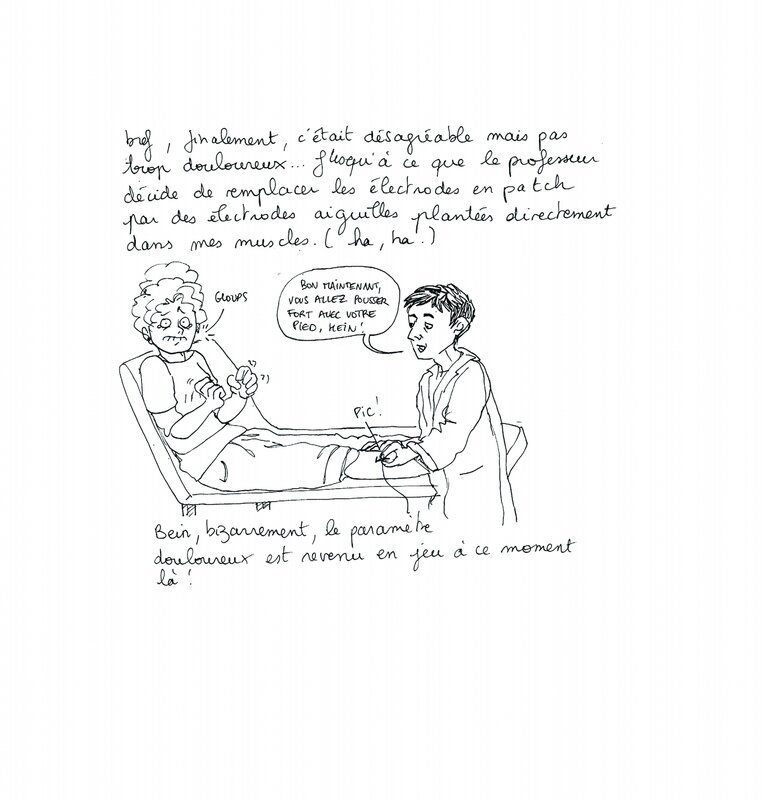 bref, finalement, c'était désagréable mais pas
trop douloureux... Jusqu'à ce que le professeur
décide de remplacer les électrodes en patch
par des électrodes aiguilles plantées directement
dans mes muscles. (ha, ha!)
GLOUPS
BON MAINTENANT,
VOUS ALLEZ POUSSER
FORT AVEC VOTRE
PIED, HEIN!
PIC!
Bein, bizarrement, le paramètre
douloureux est revenu en jeu à ce moment
là!